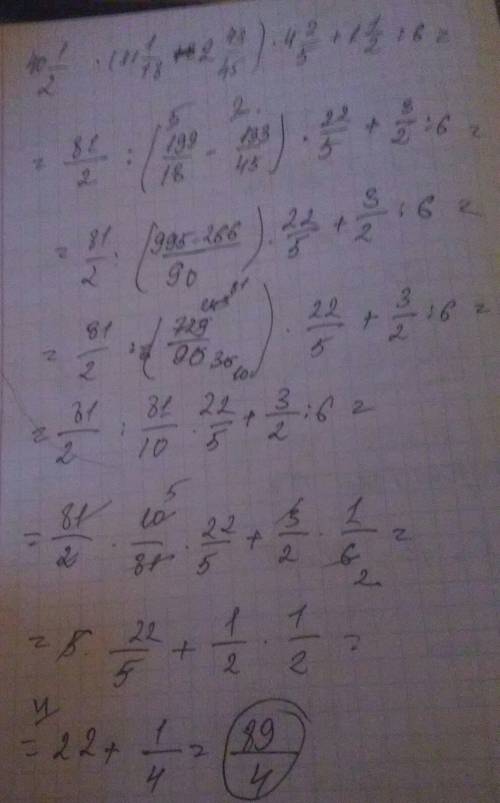 40 1/2 : (11 1/18 - 2 43/45) · 4 2/5 + 1 1/2 : 6 =
= 81/2 : (199/18 - 133/45) · 22/5 + 3/2 : 6 =
5 2
= 81/2 : (995-266/90) · 22/5 + 3/2 : 6 =
= 81/2 : (729/90) · 22/5 + 3/2 : 6 =
= 81/2 : 81/10 · 22/5 + 3/2 : 6 =
= 81/2 · 10/81 · 22/5 + 3/2 · 1/6 =
5 2
= 5 · 22/5 + 1/2 · 1/2 =
4
= 22 + 1/4 = 89/4